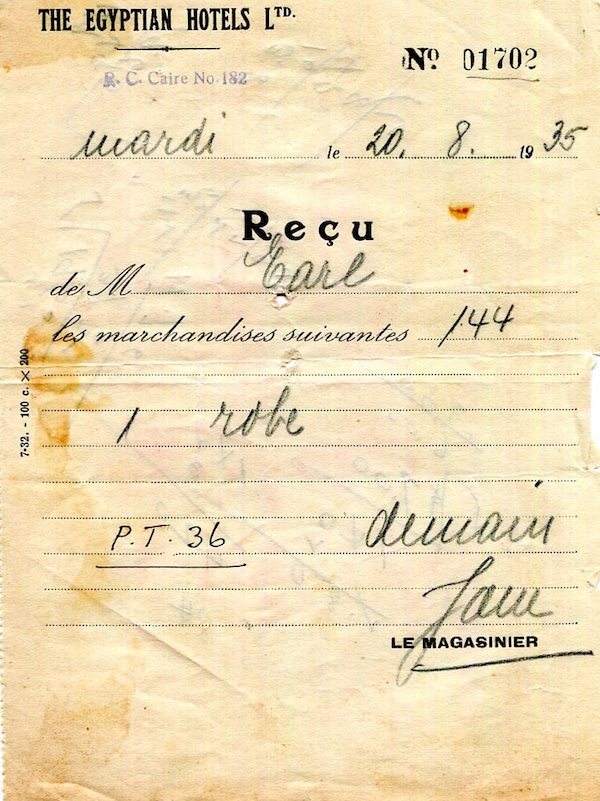 THE EGYPTIAN HOTELS LTD.
R. C. Caire No 182
No 01702
mardi le 20. 8. 1935
Reçu
de M Earl
les marchandises suivantes 144
7-32. - 100 c. × 200
1 robe
demain
P.T. 36
LE MAGASINIER